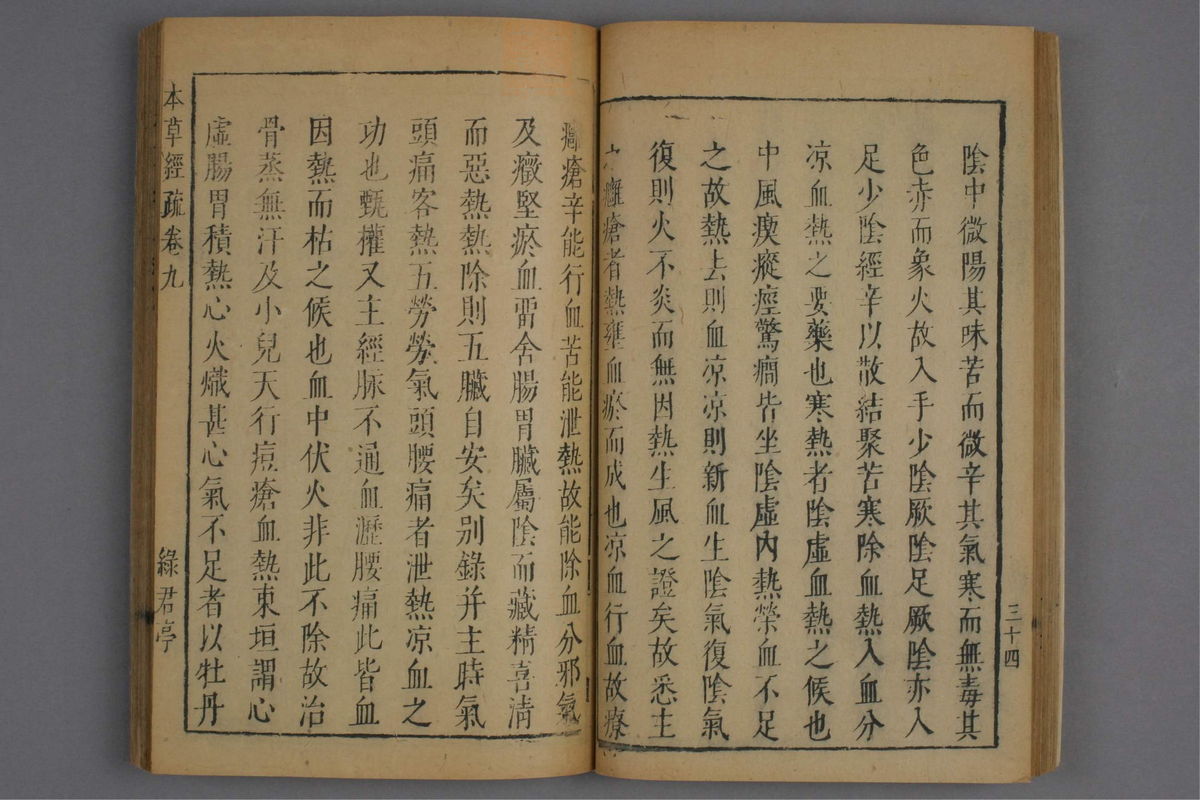 三十四
陰中微陽其味苦而微辛其氣寒而無毒其
色赤而象火故入手少陰厥陰足厥陰亦入
足少陰經辛以散結聚苦寒除血熱入血分
凉血熱之要藥也寒熱者陰虛血熱之候也
中風瘈瘲痙驚癎皆坐陰虛內熱榮血不足
之故熱去則血凉凉則新血生陰氣復陰氣
復則火不炎而無因熱生風之證矣故悉主
之癰瘡者熱壅血瘀而成也凉血行血故療
癰瘡辛能行血苦能泄熱故能除血分邪氣
及癥堅瘀血畱舍腸胃臟屬陰而藏精喜清
而惡熱熱除則五臟自安矣别錄并主時氣
頭痛客熱五勞勞氣頭腰痛者泄熱凉血之
功也甄權又主經脉不通血瀝腰痛此皆血
因熱而枯之候也血中伏火非此不除故治
骨蒸無汗及小兒天行痘瘡血熱東垣謂心
虛腸胃積熱心火熾甚心氣不足者以牡丹
本草經疏卷九
綠君亭